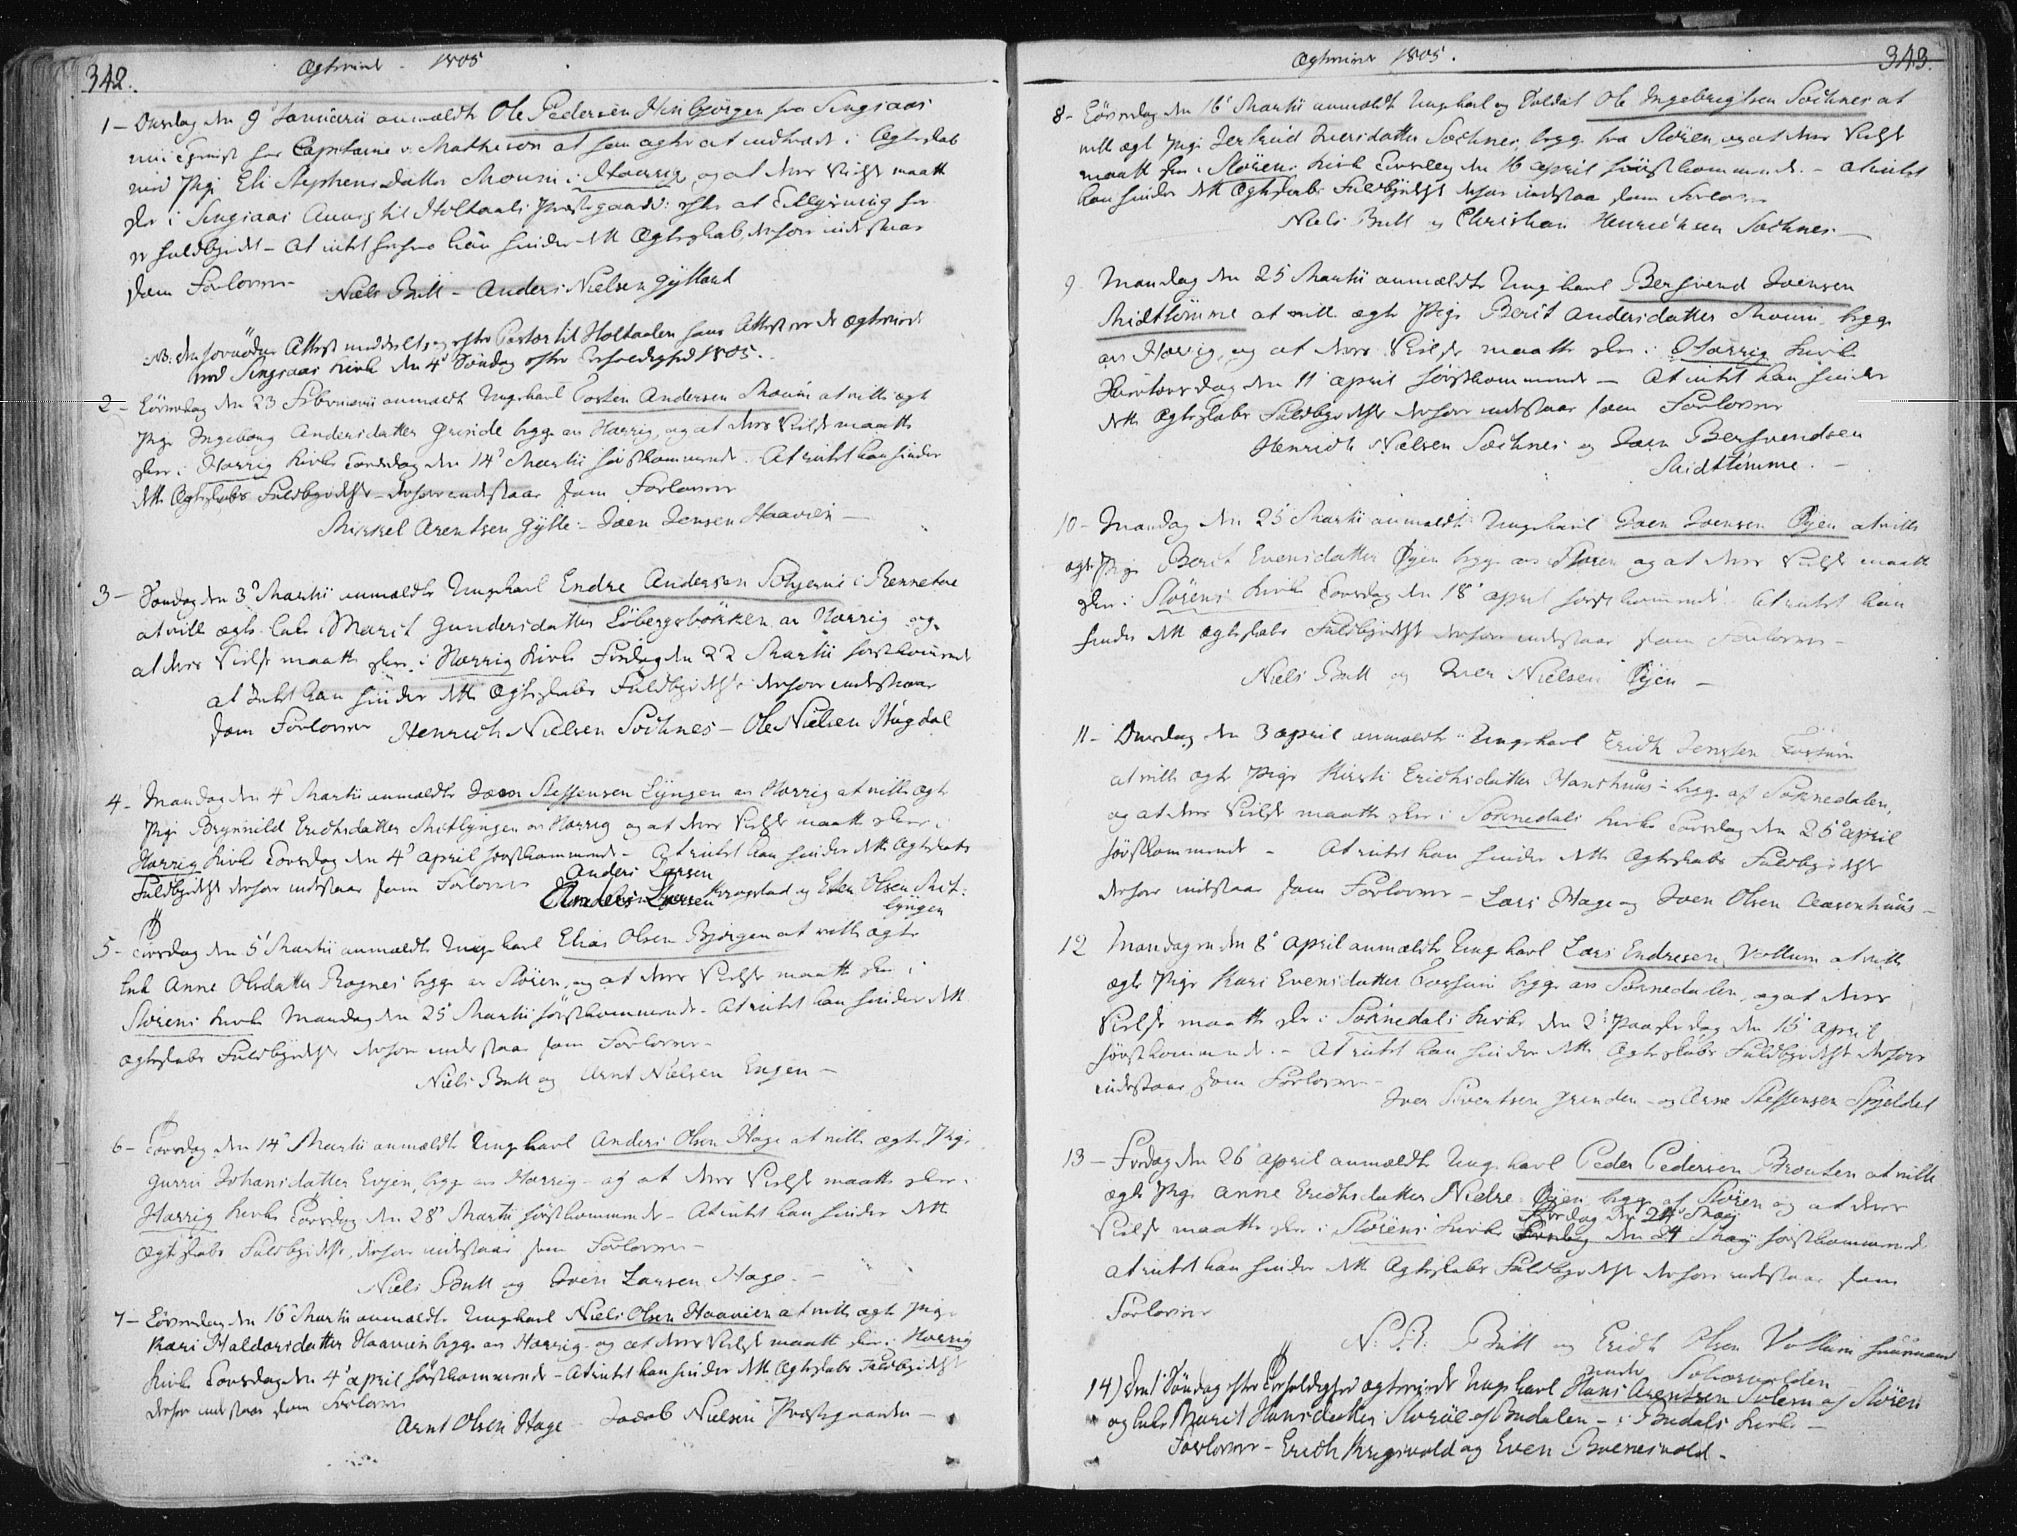 342.
Ægteviede - 1805
1 - Onsdag den 9' Januarii anmældte Ole Pedersen Hinbjörgen fra Singsaas
Capitaine v. Matheson at han agter at indtræde i Ægteskab
med Pige Eli Stephensdatter Moum i Horrig, og at deres Vielse maatte
skee i Singsaas Holtaals Præstegaard: efter at Tillysning her
er fuldbyrdet - At intet hindre dette Ægteskab, derfore indestaar
som Forlover Niels Butt - Anders Nielsen Gylland
NB: den fornödne Attest meddelt, og efter Pastor til Holtaalen hans Attest ere de ægteviede
ved Singsaas Kirke den 4' Söndag efter 1805.
2 - Löverdag den 23 Februarii anmældte Ungekarl Torsten Andersen Moum at ville ægte
Pige Ingeborg Andersdatter Grinde begge av Horrig, og at deres Vielse maatte
skee i Horrig Kirke Torsdag den 14' Martii förstkommende. At intet kan hindre
dette Ægteskabs Fuldbyrdelse derfore indestaar som Forlover
Mikkel Arentsen Gylle - Joen Jensen Haavien -
3 - Söndag den 3' Martii anmældte Ungekarl Endre Andersen Solhjem i Rennebue
at ville ægte Enke Marit Gundersdatter Löbergsbökken av Horrig og
at deres Vielse maatte skee i Horrig Kirke Fredag den 22 Martii förstkommende
at Intet kan hindre dette Ægteskabs Fuldbyrdelse derfore indestaar
som Forlover Henrich Nielsen Sochnes - Ole Nielsen Hugdal
4 - Mandag den 4' Martii anmældte Joen Steffensen Lyngen av Horrig at ville ægte
Pige Brynnild Erichsdatter Mitlyngen av Horrig og at deres Vielse maatte skee i
Horrig Kirke Torsdag den 4' April förstkommende - At intet kan hindre dette Ægteskabs
Fuldbyrdelse derfore indestaar som Forlover Anders Larsen
Krogstad og Eden Olsen Mit-
lyngen
5 - Tirsdag den 5' Martii anmældte Ungekarl Elias Olsen Bjørgen at ville ægte
Enke Anne Olsdatter Rognes begge av Stören, og at deres Vielse maatte skee i
Störens Kirke Mandag den 25' Martii förstkommende - At intet kan hindre dette
Ægteskabs Fuldbyrdelse derfore indestaar som Forlover -
Niels Butt og Arnt Nielsen Engen -
6 - Torsdag den 14' Martii anmældte Ungekarl Anders Olsen Hage at ville ægte Pige
Gurru Johansdatter Evjen, begge av Horrig - og at deres Vielse maatte skee i
Horrig Kirke Torsdag den 28' Martii förstkommende - At intet kan hindre dette
Ægteskabs Fuldbyrdelse, derfore indestaar som Forlover -
Niels Butt og Iven Larsen Hage. -
7 - Löverdag den 16' Martii anmældte Ungekarl Niels Olsen Haavien at ville ægte Pige
Kari Haldorsdatter Haavien begge av Horrig - og at deres Vielse maatte skee i Horrig
Kirke Torsdag den 4' april förstkommende - At intet kan hindre dette Ægteskabs Fuldbyrdelse
derfore indestaar som Forlover
Arnt Olsen Hage Jacob Nielsen Præstegaarden -
343.
Ægteviede 1805.
8 - Löverdag den 16' Martii anmældte Ungekarl og Soldat Ole Ingebrigtsen Sochnes at
ville ægte Pige Jertrud Iversdatter Sochnes, begge fra Stören, og at deres Vielse
maatte skee i Störens Kirke Tirsdag den 16 april förstkommende. - At intet
kan hindre dette Ægteskabs Fuldbyrdelse derfore indestaar som Forlover
Niels Butt og Christian Henrichsen Sochnes -
9 Mandag den 25 Martii anmældte Ungekarl Bersvend Joensen
Midtlömme at ville ægte Pige Berit Andersdatter Moum, begge
av Horrig, og at deres Vielse maatte skee i Horrig Kirke
Skiertorsdag den 11' april förstkommende - At intet kan hindre
dette Ægteskabs Fuldbyrdelse derfore indestaar som Forlover
Henrich Nielsen Sochnes og Joen Bersvendsen
Midtlömme. -
10 - Mandag den 25' Martii anmældte Ungekarl Even Ivensen Öyen at ville
ægte Pige Berit Evensdatter Öyen begge av Stören og at deres Vielse maatte
skee i Störens Kirke Torsdag den 18' april förstkommende. At intet kan
hindre dette Ægteskabs Fuldbyrdelse derfore indestaar som Forlover -
Niels Butt og Iver Nielsen Öyen -
11 - Onsdag den 3 april anmældte Ungekarl Erich Jenssen Fossum
at ville ægte Pige Kirsti Erichsdatter Hanshuus - begge af Soknedalen,
og at deres Vielse maatte skee i Soknedals Kirke Torsdag den 25' april
förstkommende - At intet kan hindre dette Ægteskabs Fuldbyrdelse
derfore indestaar som Forlover - Lars Hage og Iven Olsen Aasenhuus -
12 Mandagen den 8' april anmældte Ungekarl Lars Endresen Vollum at ville
ægte Pige Kari Evensdatter Fossum begge av Soknedalen, og at deres
Vielse maatte skee i Soknedals Kirke den 2' Paaskedag den 15' april
förstkommende. - At intet kan hindre dette Ægteskabs Fuldbyrdelse derfore
indestaar som Forlover -
Iver Sivertsen Grinden - og Arne Steffensen Spjeldet
13 - Fredag den 26' april anmældte Ungekarl Peder Pedersen Brouten at ville
ægte Pige Anne Erichsdatter Nedre Öyen begge af Stören og at deres
Vielse maatte skee i Störens Kirke Fredag den 24' Maij förstkommende
At intet kan hindre dette Ægteskabs Fuldbyrdelse derfore indestaar som
Forlover
N: R: Butt og Erich Olsen Vollum Huusmand
under Solvervolden
14) den 1' Söndag efter ægteviede Ungekarl Hans Arentsen Solem af Stören
og Enke Marit Hansdatter Storöe af Budalen - i Budals Kirke -
Forlover - Erich Krigsvold og Even Bvenesvold -